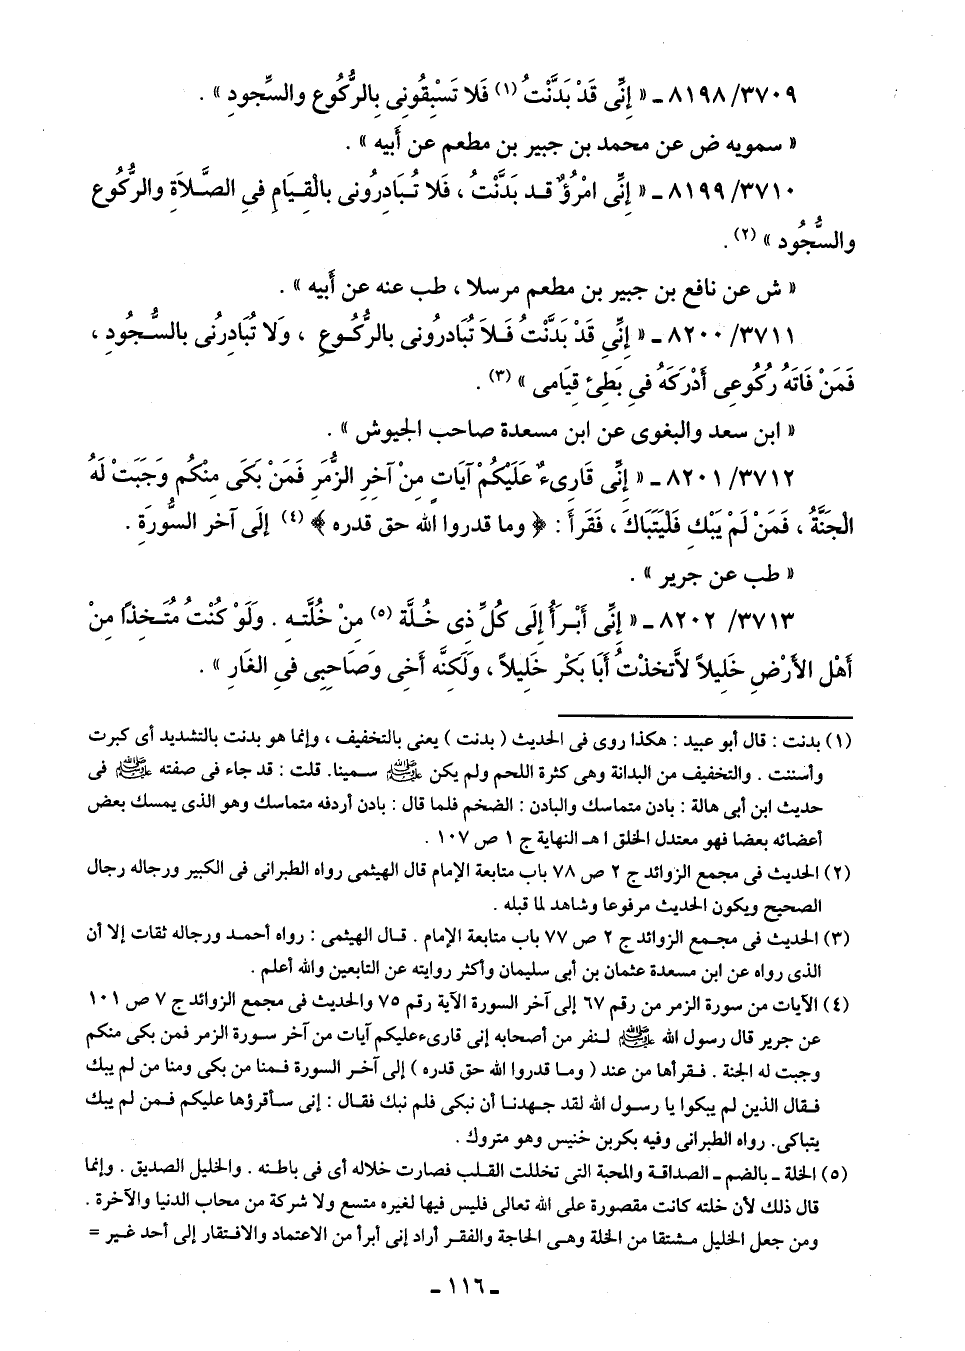 ٨١٩٨/٣٧٠٩ ـ « إِنِّي قَدْ بَدَّنْتُ (١) فَلا تَسْبِقُونِى بِالرُّكُوعِ والسِّجودِ » .
« سمويه ض عن محمد بن جبير بن مطعم عن أَبيه » .
٨١٩٩/٣٧١٠ ـ « إِنِّي امْرُؤٌ قد بَدَّنْتُ ، فَلا تُبَادِرُونى بالْقِيَامِ فِي الصَّلاَةِ والرُّكُوعِ
والسُّجُودِ » (٢) .
« ش عن نافع بن جبير بن مطعم مرسلا ، طب عنه عن أَبيه » .
٨٢٠٠/٣٧١١ ـ « إِنِّي قَدْ بَدَّنْتُ فَلاَ تُبَادرُونى بالرُّكُوعِ ، وَلَا تُبَادِرُنى بالسُّجُودِ ،
فَمَنْ فَاتَهُ رُكُوعِى أَدْرَكَهُ فِي بَطِئِ قِيَامِى » (٣) .
« ابن سعد والبغوى عن ابن مسعدة صاحب الجيوش » .
٨٢٠١/٣٧١٢ ـ « إِنِّي قَارِىءٌ عَلَيْكُمْ آيَاتٍ مِنْ آخِرِ الزُّمَرِ فَمَنْ بَكَى مِنْكُم وَجَبَتْ لَهُ
الْجَنَّةُ ، فَمَنْ لَمْ يَبْكِ فَلْيَتَبَاكَ ، فَقَرأَ : ﴿ وما قدروا الله حق قدره ﴾ (٤) إِلَى آخر السُّورَةِ .
« طب عن جرير » .
٨٢٠٢ /٣٧١٣ ـ « إِنِّي أَبْرَأُ إِلَى كُلِّ ذِى خُلَّة (٥) مِنْ خُلَّتهِ . وَلَوْ كُنْتُ مُتَخِذًا مِنْ
أَهْل الأَرْضِ خَلِيلاً لأَتخذتُ أَبَا بَكْر خَلِيلاً ، وَلَكنَّه أَخِى وَصَاحِبِى فِي الغَارِ » .
(١) بدنت : قال أبو عبيد : هكذا روى فى الحديث ( بدنت ) يعنى بالتخفيف ، وإنما هو بدنت بالتشديد أى كبرت
وأسننت . والتخفيف من البدانة وهى كثرة اللحم ولم يكن ﷺ سمينا. قلت : قد جاء فى صفته ﷺ فى
حديث ابن أبى هالة : بادن متماسك والبادن : الضخم فلما قال : بادن أردفه متماسك وهو الذى يمسك بعض
أعضائه بعضا فهو معتدل الخلق ا هـ النهاية ج ١ ص ١٠٧ .
(٢) الحديث فى مجمع الزوائد ج ٢ ص ٧٨ باب متابعة الإمام قال الهيثمى رواه الطبرانى فى الكبير ورجاله رجال
الصحيح ويكون الحديث مرفوعا وشاهد لما قبله .
(٣) الحديث فى مجمع الزوائد ج ٢ ص ٧٧ باب متابعة الإمام . قال الهيثمى : رواه أحمد ورجاله ثقات إلا أن
الذى رواه عن ابن مسعدة عثمان بن أبى سليمان وأكثر روايته عن التابعين والله أعلم .
(٤) الآيات من سورة الزمر من رقم ٦٧ إلى آخر السورة الآية رقم ٧٥ والحديث فى مجمع الزوائد ج ٧ ص ١٠١
عن جرير قال رسول الله ﷺ لنفر من أصحابه إنى قارىءعليكم آيات من آخر سورة الزمر فمن بكى منكم
وجبت له الجنة . فقرأها من عند ( وما قدروا الله حق قدره ) إلى آخر السورة فمنا من بكى ومنا من لم يبك
فقال الذين لم يبكوا يا رسول الله لقد جهدنا أن نبكى فلم نبك فقال : إنى سأقرؤها عليكم فمن لم يبك
يتباكى. رواه الطبرانى وفيه بكربن خنيس وهو متروك .
(٥) الخلة ـ بالضم ـ الصداقة والمحبة التى تخللت القلب فصارت خلاله أى فى باطنه . والخليل الصديق . وإنما
قال ذلك لأن خلته كانت مقصورة على الله تعالى فليس فيها لغيره متسع ولا شركة من محاب الدنيا والآخرة .
ومن جعل الخليل مشتقا من الخلة وهى الحاجة والفقر أراد إنى أبرأ من الاعتماد والافتقار إلى أحد غير =
ـ ١١٦ ـ